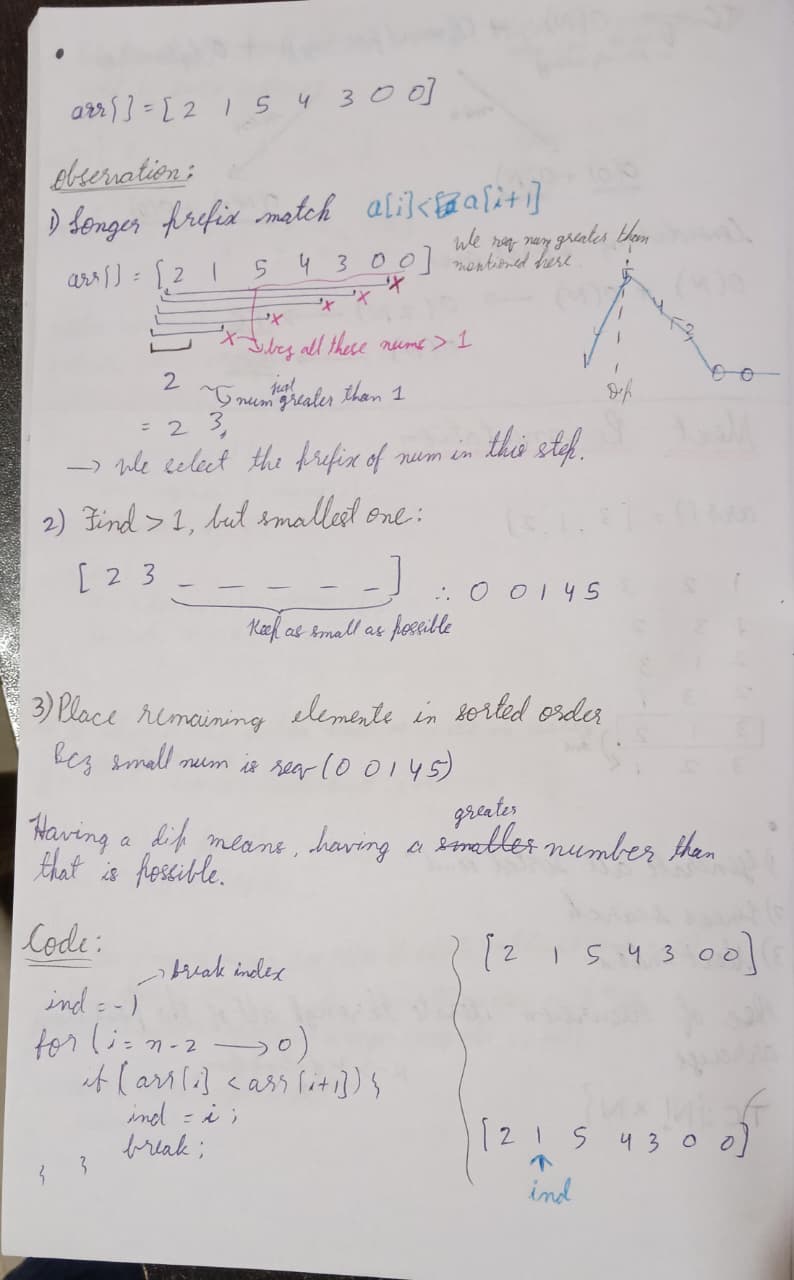 arr[] = [2 1 5 4 3 0 0]
Observation:
1) Longer prefix match a[i]<a[i+1]
We req num greater than
mentioned here
arr[] = [2 1 5 4 3 0 0]
x x x x x
bcz all these nums > 1
2
just
num greater than 1
= 2 3,
→ We select the prefix of num in this step.
5
4
3
0 0
dip
2) Find > 1, but smallest one:
[2 3 _ _ _ _ _] ∴ 0 0 1 4 5
Keep as small as possible
3) Place remaining elements in sorted order.
Bcz small num is req (0 0 1 4 5)
greater
Having a dip means, having a smaller number than
that is possible.
Code:
→ break index
ind = -1
for (i = n-2 → 0)
if (arr[i] < arr[i+1]) {
ind = i;
break;
} }
[2 1 5 4 3 0 0]
[2 1 5 4 3 0 0]
↑
ind